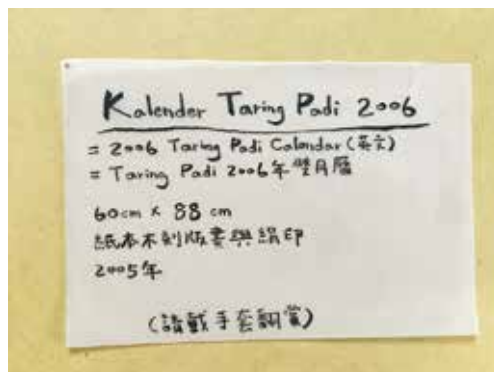 Kalender Taring Padi 2006
= 2006 Taring Padi Calendar (英文)
= Taring Padi 2006年雙月曆
60cm x 88 cm
紙本木刻版畫與絹印
2005年
(請戴手套翻賞)